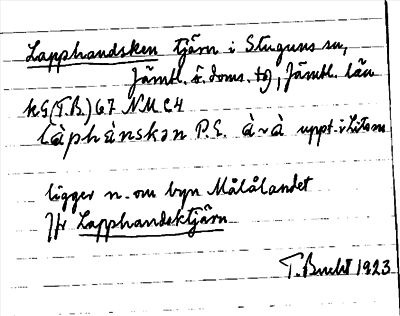 Lapphandsken tjärn i Stuguns sn,
Jämtl. ö. doms. tg, Jämtl. län
kG (T.B.) 67 NU C4
làphànskən P.E. à~à uppt. i
ligger n. om byn Målålandet
Jfr Lapphandsktjärn
T. Bucht 1923